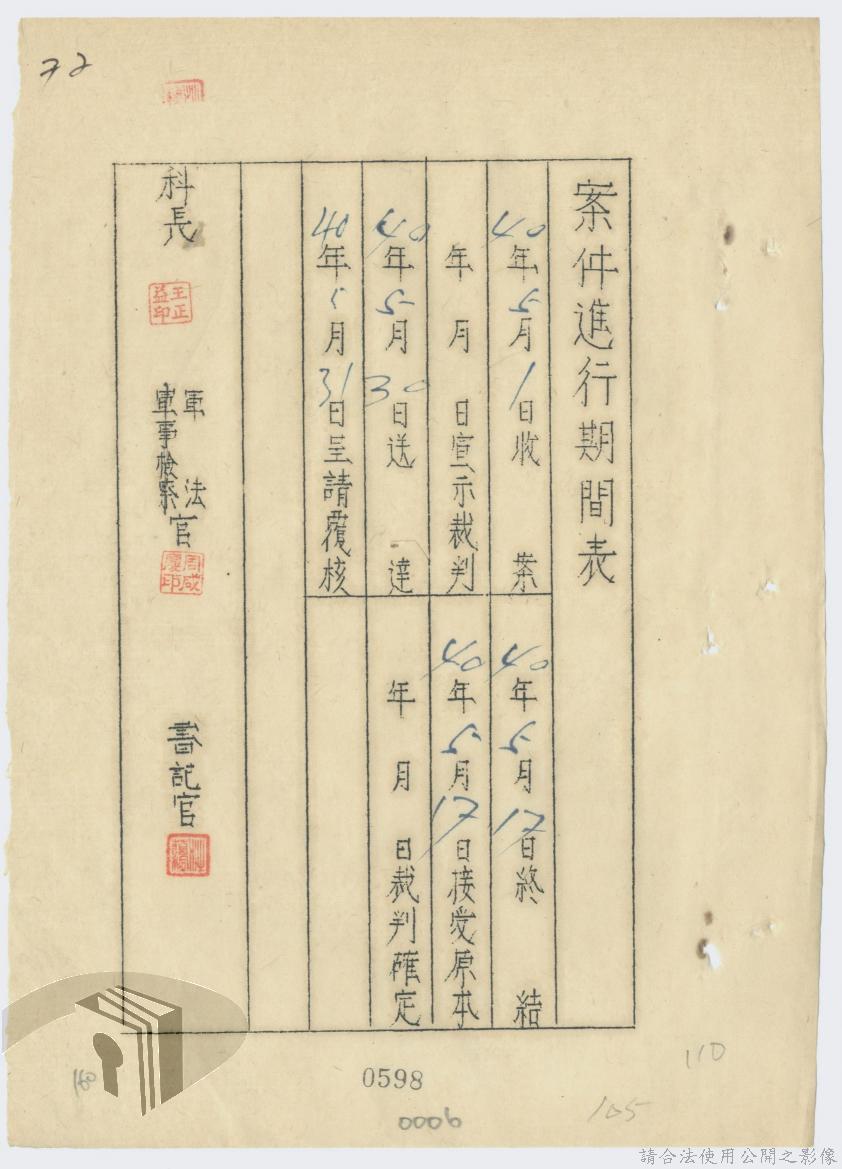 案件進行期間表
40年5月1日收案
40年5月17日終結
年月日宣示裁判
40年5月17日接受原本
40年5月30日送達
年月日裁判確定
40年5月31日呈請覆核
科長
王正益印
軍法
軍事檢察
官
周咸慶印
書記官
0598
0006
110
105
160
請合法使用公開之影像